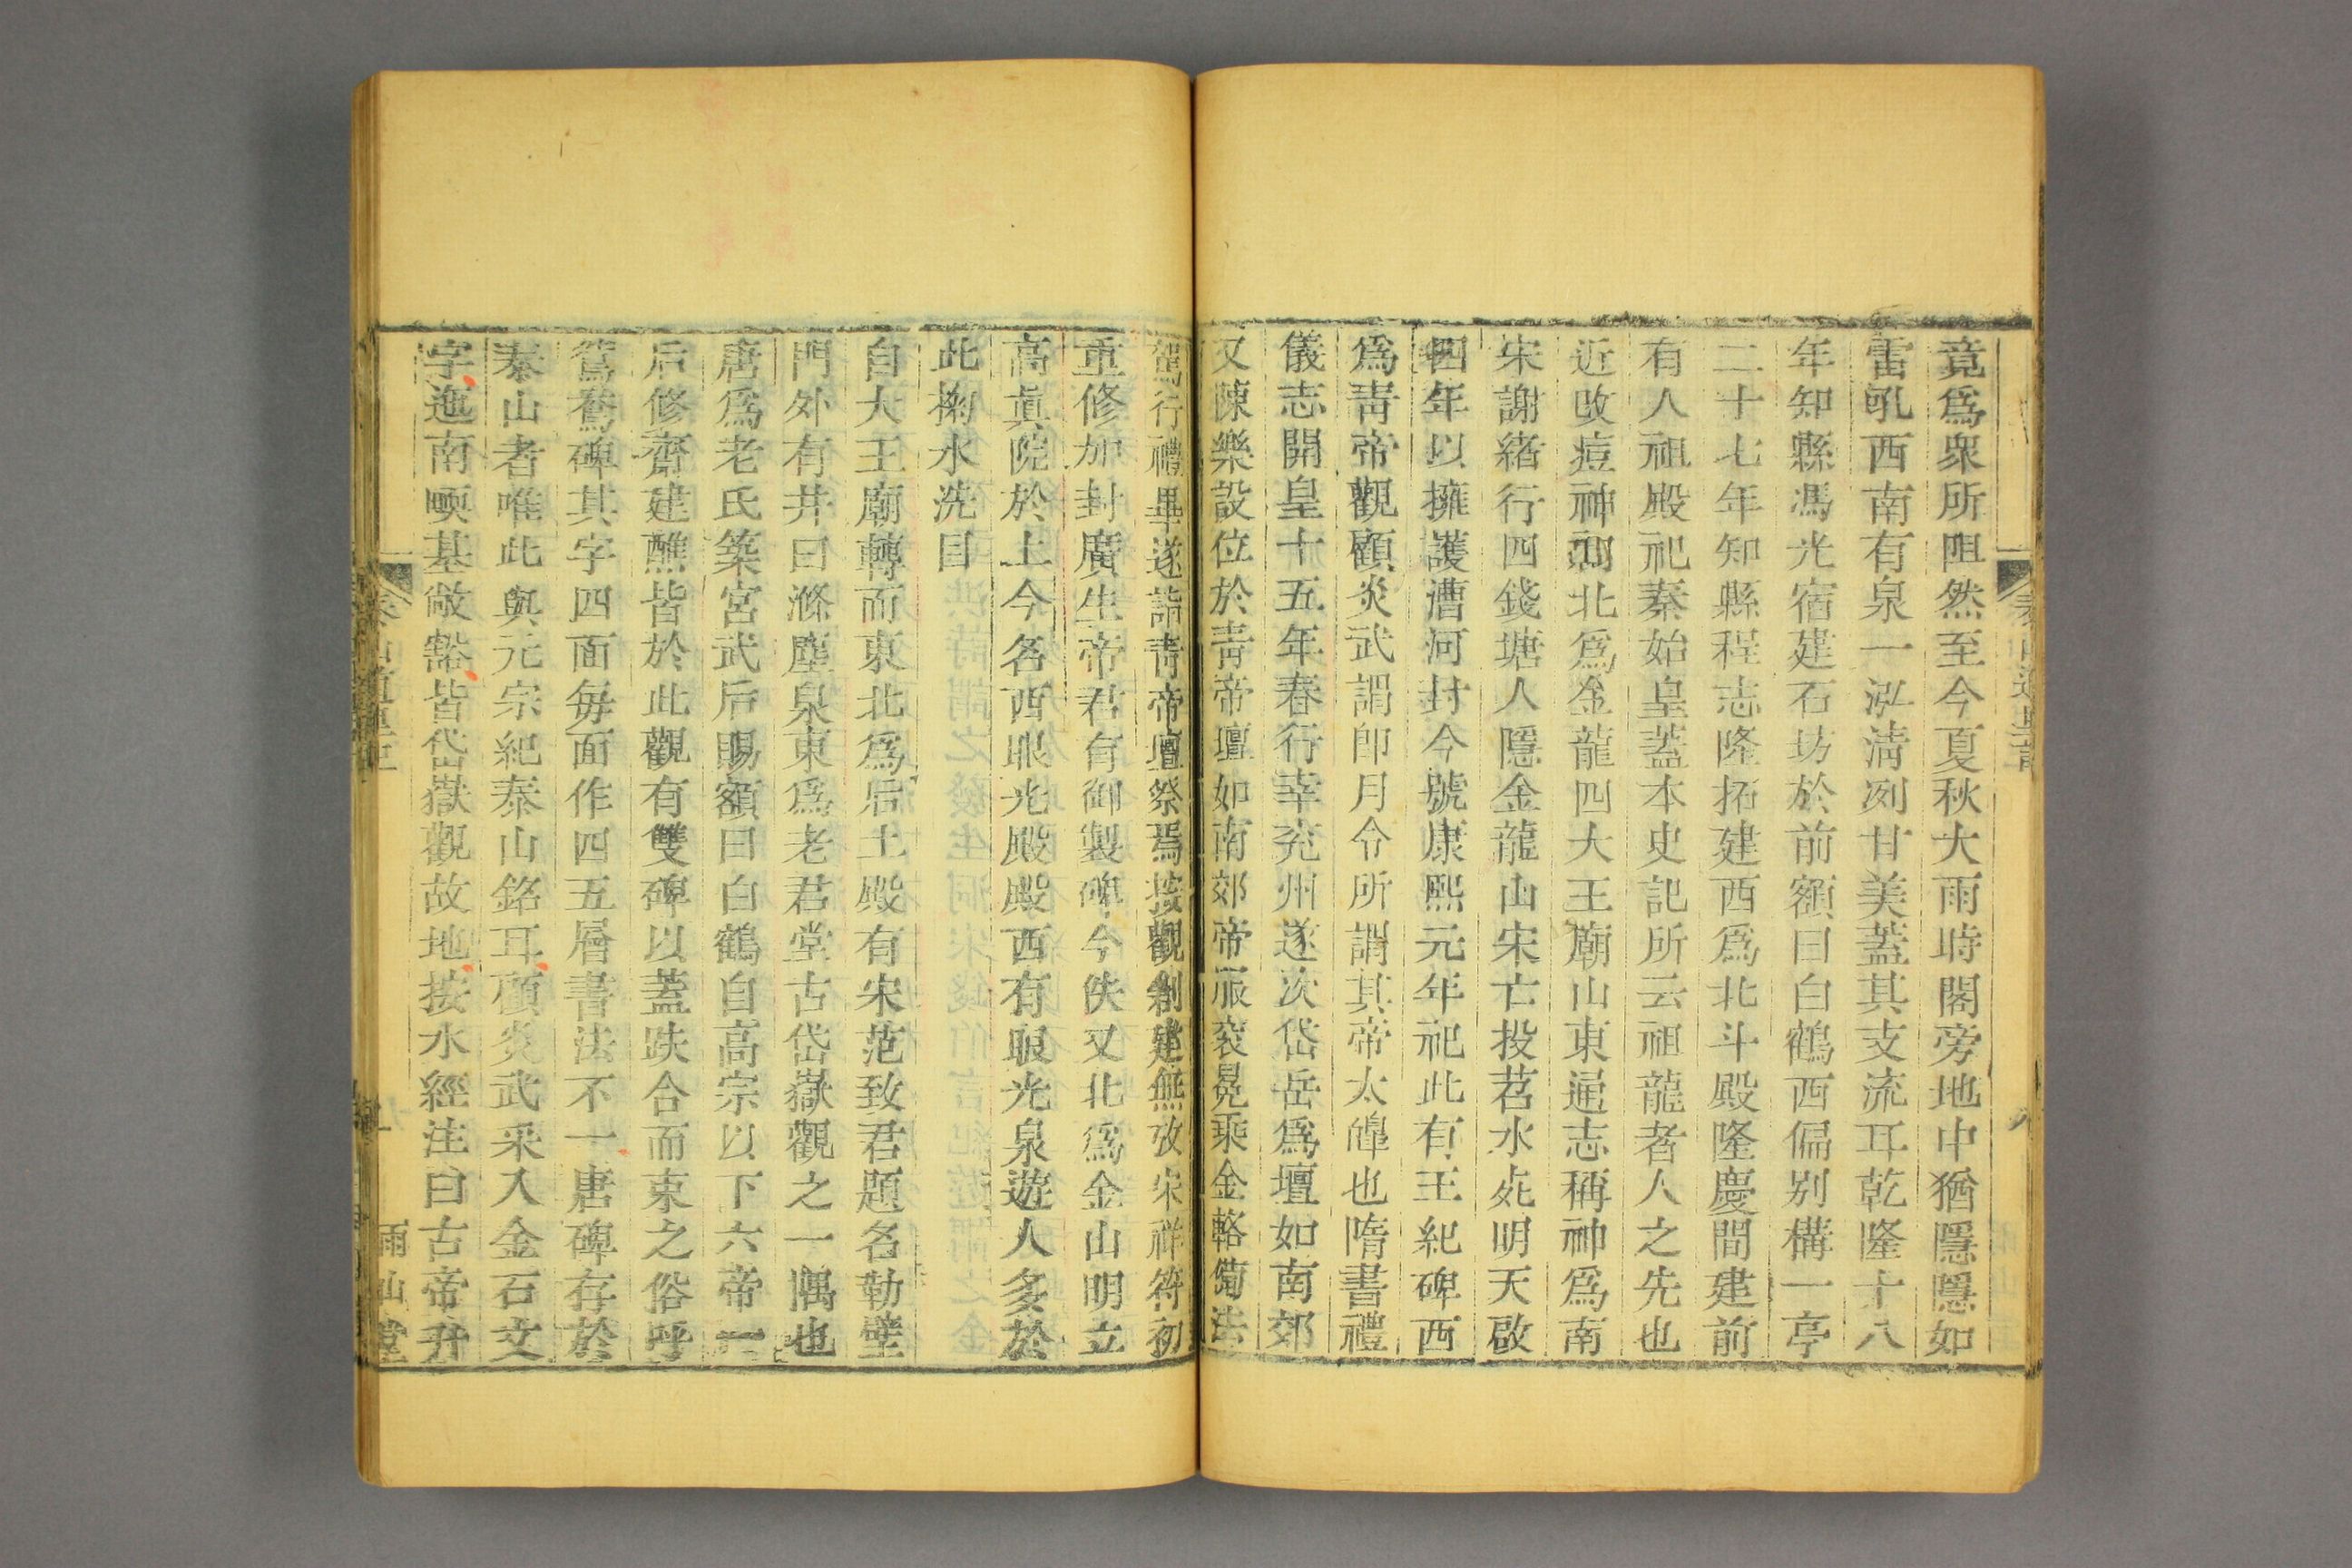 竟爲衆所阻然至今夏秋大雨時閣旁地中猶隱隱如
雷吼西南有泉一泓清冽甘美蓋其支流耳乾隆十八
年知縣馮光宿建石坊於前額曰白鶴西偏别構一亭
二十七年知縣程志隆拓建西爲北斗殿隆慶間建前
有人祖殿祀秦始皇蓋本史記所云祖龍者人之先也
近改痘神祠北爲金龍四大王廟山東通志稱神爲南
宋謝緒行四錢塘人隱金龍山宋亡投苕水死明天啟
四年以擁護漕河封今號康熙元年祀此有王紀碑西
爲青帝觀顧炎武謂卽月令所謂其帝太皥也隋書禮
儀志開皇十五年春行幸兖州遂次岱岳爲壇如南郊
又陳樂設位於青帝壇如南郊帝服衮冕乘金輅備法
駕行禮畢遂詣青帝壇祭焉按觀創建無攷宋祥符初
重修加封廣生帝君有御製碑今佚又北爲金山明立
高眞院於上今名西眼光殿殿西有眼光泉遊人多於
此掬水洗目
自大王廟轉而東北爲后土殿有宋范致君題名勒壁
門外有井曰滌塵泉東爲老君堂古岱嶽觀之一隅也
唐爲老氏築宮武后賜額曰白鶴自高宗以下六帝一
后修齋建醮皆於此觀有雙碑以蓋趺合而束之俗呼
鴛鴦碑其字四面每面作四五層書法不一唐碑存於
泰山者唯此與元宗紀泰山銘耳顧炎武采入金石文
字迤南畹基敞豁皆岱嶽觀故地按水經注曰古帝升
泰山道里記
九
雨山堂